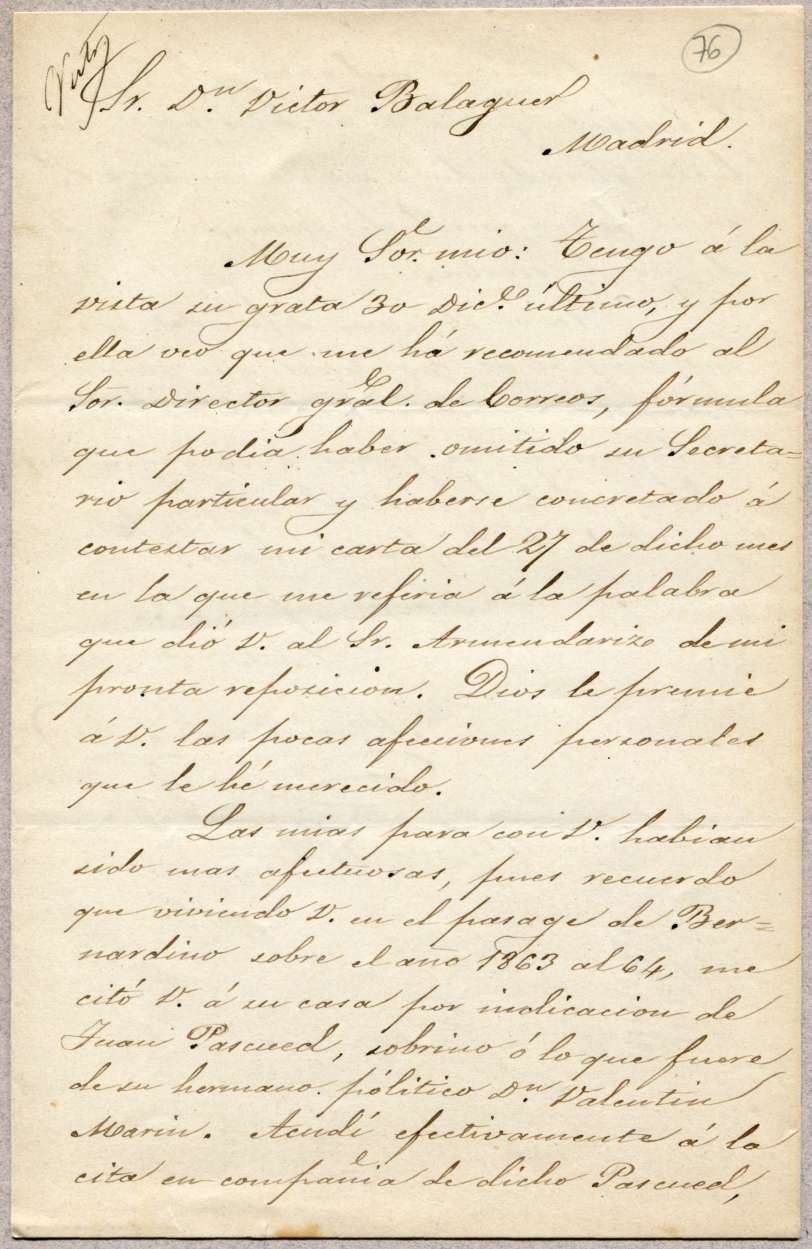 76
Sr. Dn. Victor Balaguer
Madrid.
Muy Sor. mio: Tengo á la
vista su grata 30 Dice. último, y por
ella veo que me há recomendado al
Sor. Director gral. de Correos, fórmula
que podia haber omitido su Secreta=
rio particular y haberse concretado á
contestar mi carta del 27 de dicho mes
en la que me referia á la palabra
que dió V. al Sr. Armendariz de mi
pronta reposicion. Dios le premie
á V. las pocas afecciones personales
que le hé merecido.
Las mias para con V. habian
sido mas afectuosas, pues recuerdo
que viviendo V. en el pasage de Ber=
nardino sobre el año 1863 al 64, me
citó V. á su casa por indicacion de
Juan Pascued, sobrino ó lo que fuere
de su hermano pólitico Dn. Valentin
Marin. Acudí efectivamente á la
cita en compañia de dicho Pascued,